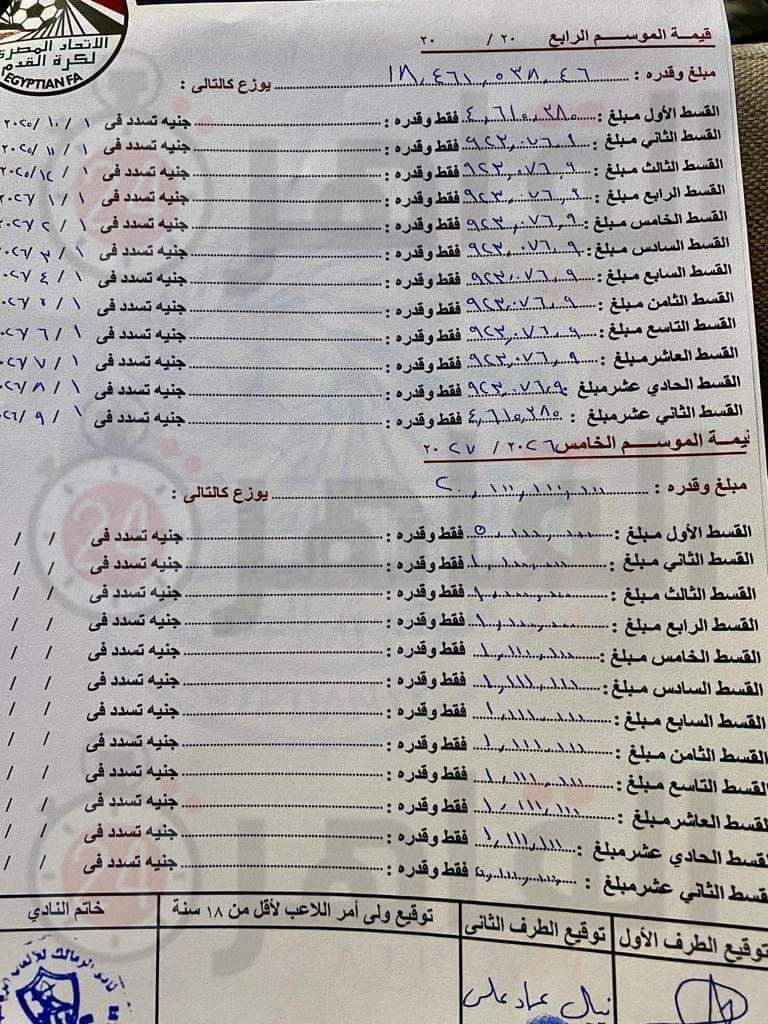 الاتحاد المصرى
لكرة القدم
EGYPTIAN FA
قيمة الموسم الرابع ٢٠ / ٢٠
مبلغ وقدره : ١٨,٤٦١,٥٣٨,٤٦ يوزع كالتالى :
القسط الأول مبلغ : ٤,٦١٥,٣٨٠ فقط وقدره : جنيه تسدد فى ١ / ١٠ / ٢٠٢٥
القسط الثاني مبلغ : ٩٢٣,٠٧٦,٩ فقط وقدره : جنيه تسدد فى ١ / ١١ / ٢٠٢٥
القسط الثالث مبلغ : ٩٢٣,٠٧٦,٩ فقط وقدره : جنيه تسدد فى ١ / ١٢ / ٢٠٢٥
القسط الرابع مبلغ : ٩٢٣,٠٧٦,٩ فقط وقدره : جنيه تسدد فى ١ / ١ / ٢٠٢٦
القسط الخامس مبلغ : ٩٢٣,٠٧٦,٩ فقط وقدره : جنيه تسدد فى ١ / ٢ / ٢٠٢٦
القسط السادس مبلغ : ٩٢٣,٠٧٦,٩ فقط وقدره : جنيه تسدد فى ١ / ٣ / ٢٠٢٦
القسط السابع مبلغ : ٩٢٣,٠٧٦,٩ فقط وقدره : جنيه تسدد فى ١ / ٤ / ٢٠٢٦
القسط الثامن مبلغ : ٩٢٣,٠٧٦,٩ فقط وقدره : جنيه تسدد فى ١ /
القسط التاسع مبلغ : ٩٢٣,٠٧٦,٩ فقط وقدره : جنيه تسدد فى ١ / ٦ / ٢٠٢٦
القسط العاشر مبلغ : ٩٢٣,٠٧٦,٩ فقط وقدره : جنيه تسدد فى ١ / ٧ / ٢٠٢٦
القسط الحادي عشر مبلغ : ٩٢٣,٠٧٦,٩ فقط وقدره : جنيه تسدد فى ١ / ٨ / ٢٠٢٦
القسط الثاني عشر مبلغ : ٤,٦١٥,٣٨٥ فقط وقدره : جنيه تسدد فى ١ / ٩ /
قيمة الموسم الخامس ٢٠٢٦ / ٢٠٢٧
مبلغ وقدره : يوزع كالتالى :
القسط الأول مبلغ : فقط وقدره : جنيه تسدد فى / /
القسط الثاني مبلغ : فقط وقدره : جنيه تسدد فى / /
القسط الثالث مبلغ : فقط وقدره : جنيه تسدد فى / /
القسط الرابع مبلغ : فقط وقدره : جنيه تسدد فى / /
القسط الخامس مبلغ : فقط وقدره : جنيه تسدد فى / /
القسط السادس مبلغ : فقط وقدره : جنيه تسدد فى / /
القسط السابع مبلغ : فقط وقدره : جنيه تسدد فى / /
القسط الثامن مبلغ : فقط وقدره : جنيه تسدد فى / /
القسط التاسع مبلغ : فقط وقدره : جنيه تسدد فى / /
القسط العاشر مبلغ : فقط وقدره : جنيه تسدد فى / /
القسط الحادي عشر مبلغ : فقط وقدره : جنيه تسدد فى / /
القسط الثاني عشر مبلغ : فقط وقدره : جنيه تسدد فى / /
توقيع الطرف الأول توقيع الطرف الثانى توقيع ولى أمر اللاعب لأقل من ١٨ سنة خاتم النادي
نبيل عماد على
نادى الزمالك للألعاب
القاهرة 24